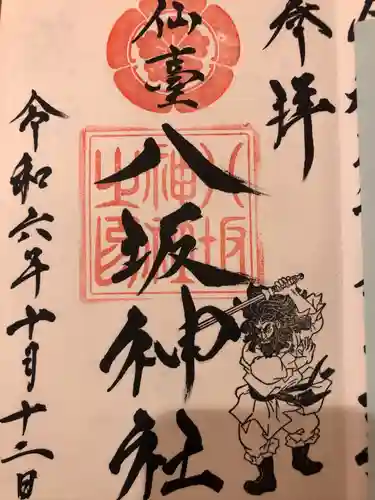 奉拝
仙臺
八坂神社
八坂神社之印
令和六年十月十二日